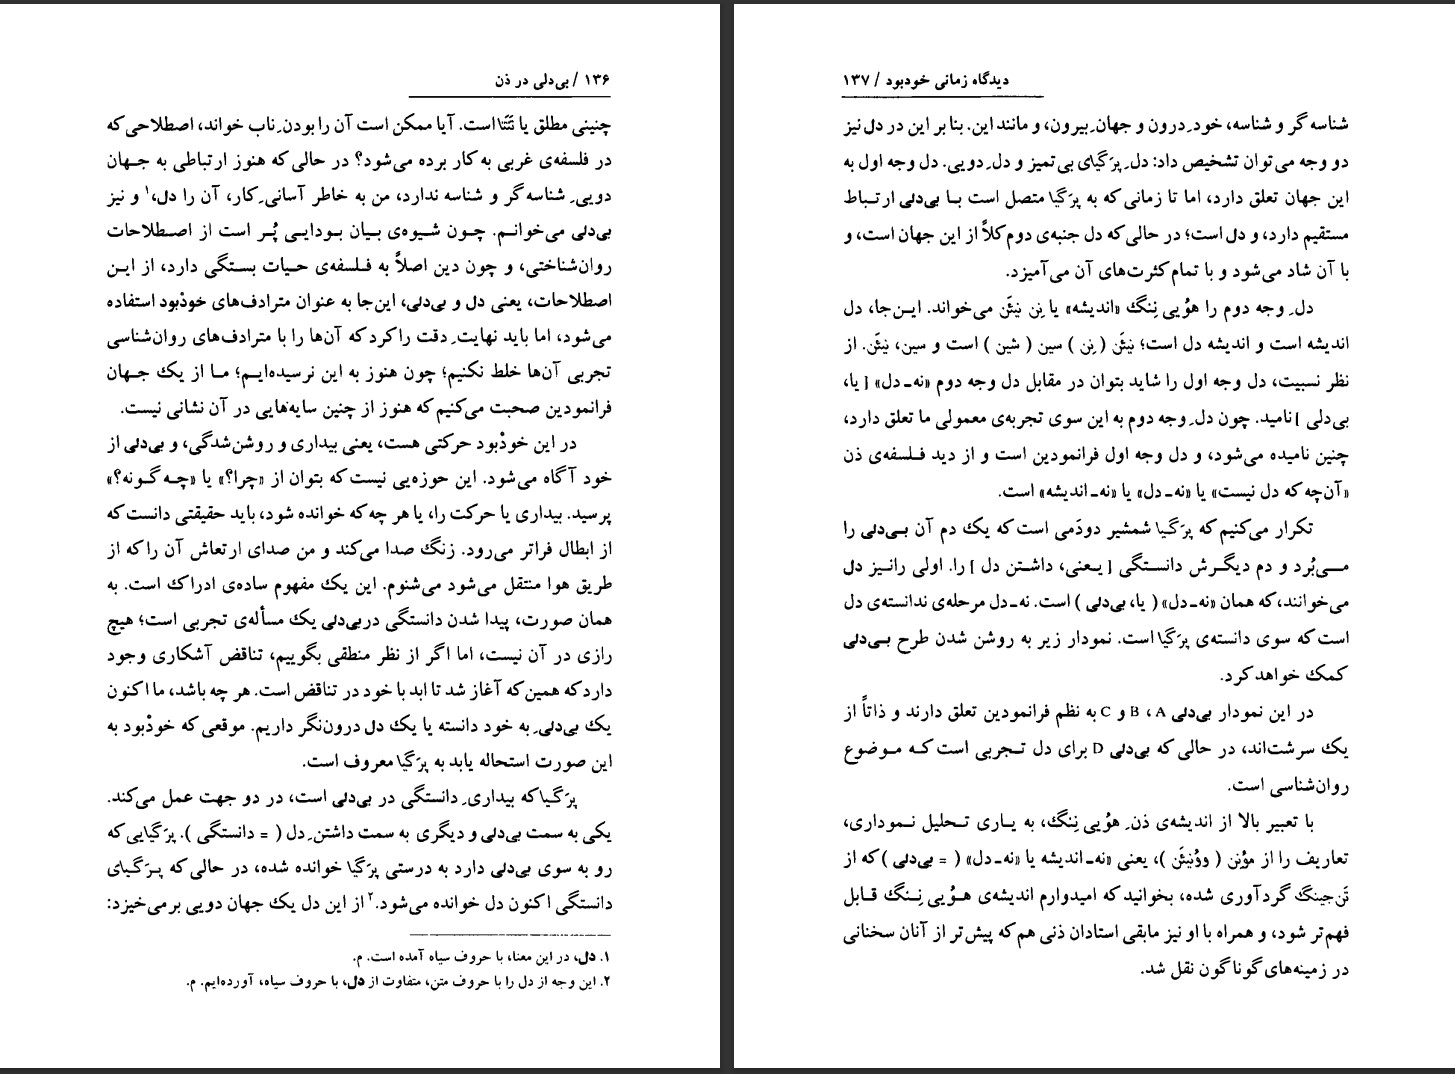 ۱۳۶ / بی‌دلی در ذن
چنینی مطلق یا تَتَتا است. آیا ممکن است آن را بودنِ ناب خواند، اصطلاحی که
در فلسفه‌ی غربی به کار برده می‌شود؟ در حالی که هنوز ارتباطی به جهان
دوییِ شناسه‌گر و شناسه ندارد، من به خاطر آسانیِ کار، آن را دل،۱ و نیز
بی‌دلی می‌خوانم. چون شیوه‌ی بیان بودایی پُر است از اصطلاحات
روان‌شناختی، و چون دین اصلاً به فلسفه‌ی حیات بستگی دارد، از این
اصطلاحات، یعنی دل و بی‌دلی، این‌جا به عنوان مترادف‌های خودْبود استفاده
می‌شود، اما باید نهایتِ دقت را کرد که آن‌ها را با مترادف‌های روان‌شناسی
تجربی آن‌ها خلط نکنیم؛ چون هنوز به این نرسیده‌ایم؛ ما از یک جهان
فرانمودین صحبت می‌کنیم که هنوز از چنین سایه‌هایی در آن نشانی نیست.
در این خودْبود حرکتی هست، یعنی بیداری و روشن‌شدگی، و بی‌دلی از
خود آگاه می‌شود. این حوزه‌یی نیست که بتوان از «چرا؟» یا «چه گونه؟»
پرسید. بیداری یا حرکت را، یا هر چه که خوانده شود، باید حقیقتی دانست که
از ابطال فراتر می‌رود. زنگ صدا می‌کند و من صدای ارتعاش آن را که از
طریق هوا منتقل می‌شود می‌شنوم. این یک مفهوم ساده‌ی ادراک است. به
همان صورت، پیدا شدن دانستگی در بی‌دلی یک مسأله‌ی تجربی است؛ هیچ
رازی در آن نیست، اما اگر از نظر منطقی بگوییم، تناقض آشکاری وجود
دارد که همین که آغاز شد تا ابد با خود در تناقض است. هر چه باشد، ما اکنون
یک بی‌دلیِ به خود دانسته یا یک دل درون‌نگر داریم. موقعی که خودْبود به
این صورت استحاله یابد به پرَگیا معروف است.
پرَگیا که بیداریِ دانستگی در بی‌دلی است، در دو جهت عمل می‌کند.
یکی به سمت بی‌دلی و دیگری به سمت داشتنِ دل ( = دانستگی ). پرَگیایی که
رو به سوی بی‌دلی دارد به درستی پرَگیا خوانده شده، در حالی که پرَگیای
دانستگی اکنون دل خوانده می‌شود.۲ از این دل یک جهان دویی برمی‌خیزد:
۱. دل، در این معنا، با حروف سیاه آمده است. م.
۲. این وجه از دل را با حروف متن، متفاوت از دل، با حروف سیاه، آورده‌ایم. م.
دیدگاه زمانی خودبود / ۱۳۷
شناسه‌گر و شناسه، خودِ درون و جهانِ بیرون، و مانند این. بنا بر این در دل نیز
دو وجه می‌توان تشخیص داد: دلِ پرَگیای بی‌تمیز و دلِ دویی. دل وجه اول به
این جهان تعلق دارد، اما تا زمانی که به پرَگیا متصل است با بی‌دلی ارتباط
مستقیم دارد، و دل است؛ در حالی که دل جنبه‌ی دوم کلاً از این جهان است، و
با آن شاد می‌شود و با تمام کثرت‌های آن می‌آمیزد.
دلِ وجه دوم را هوُیی نِنگ «اندیشه» یا نِن نیئَن می‌خواند. این‌جا، دل
اندیشه است و اندیشه دل است؛ نیئَن ( نِن ) سین ( شین ) است و سین، نیئَن. از
نظر نسبیت، دل وجه اول را شاید بتوان در مقابل دل وجه دوم «نه‌ـ دل» [ یا،
بی‌دلی ] نامید. چون دلِ وجه دوم به این سوی تجربه‌ی معمولی ما تعلق دارد،
چنین نامیده می‌شود، و دل وجه اول فرانمودین است و از دید فلسفه‌ی ذن
«آن‌چه که دل نیست» یا «نه‌ـ دل» یا «نه‌ـ اندیشه» است.
تکرار می‌کنیم که پرَگیا شمشیر دودَمی است که یک دم آن بی‌دلی را
می‌بُرد و دم دیگرش دانستگی [ یعنی، داشتن دل ] را. اولی را نیز دل
می‌خوانند، که همان «نه‌ـ دل» ( یا، بی‌دلی ) است. نه‌ـ دل مرحله‌ی ندانسته‌ی دل
است که سوی دانسته‌ی پرَگیا است. نمودار زیر به روشن شدن طرح بی‌دلی
کمک خواهد کرد.
در این نمودار بی‌دلی A ، B و C به نظم فرانمودین تعلق دارند و ذاتاً از
یک سرشت‌اند، در حالی که بی‌دلی D برای دل تجربی است که موضوع
روان‌شناسی است.
با تعبیر بالا از اندیشه‌ی ذنِ هوُیی نِنگ، به یاری تحلیل نموداری،
تعاریف را از موُنِن ( ووُنیئَن )، یعنی «نه‌ـ اندیشه یا «نه‌ـ دل» ( = بی‌دلی ) که از
تَن جینگ گردآوری شده، بخوانید که امیدوارم اندیشه‌ی هوُیی نِنگ قابل
فهم‌تر شود، و همراه با او نیز مابقی استادان ذنی هم که پیش‌تر از آنان سخنانی
در زمینه‌های گوناگون نقل شد.